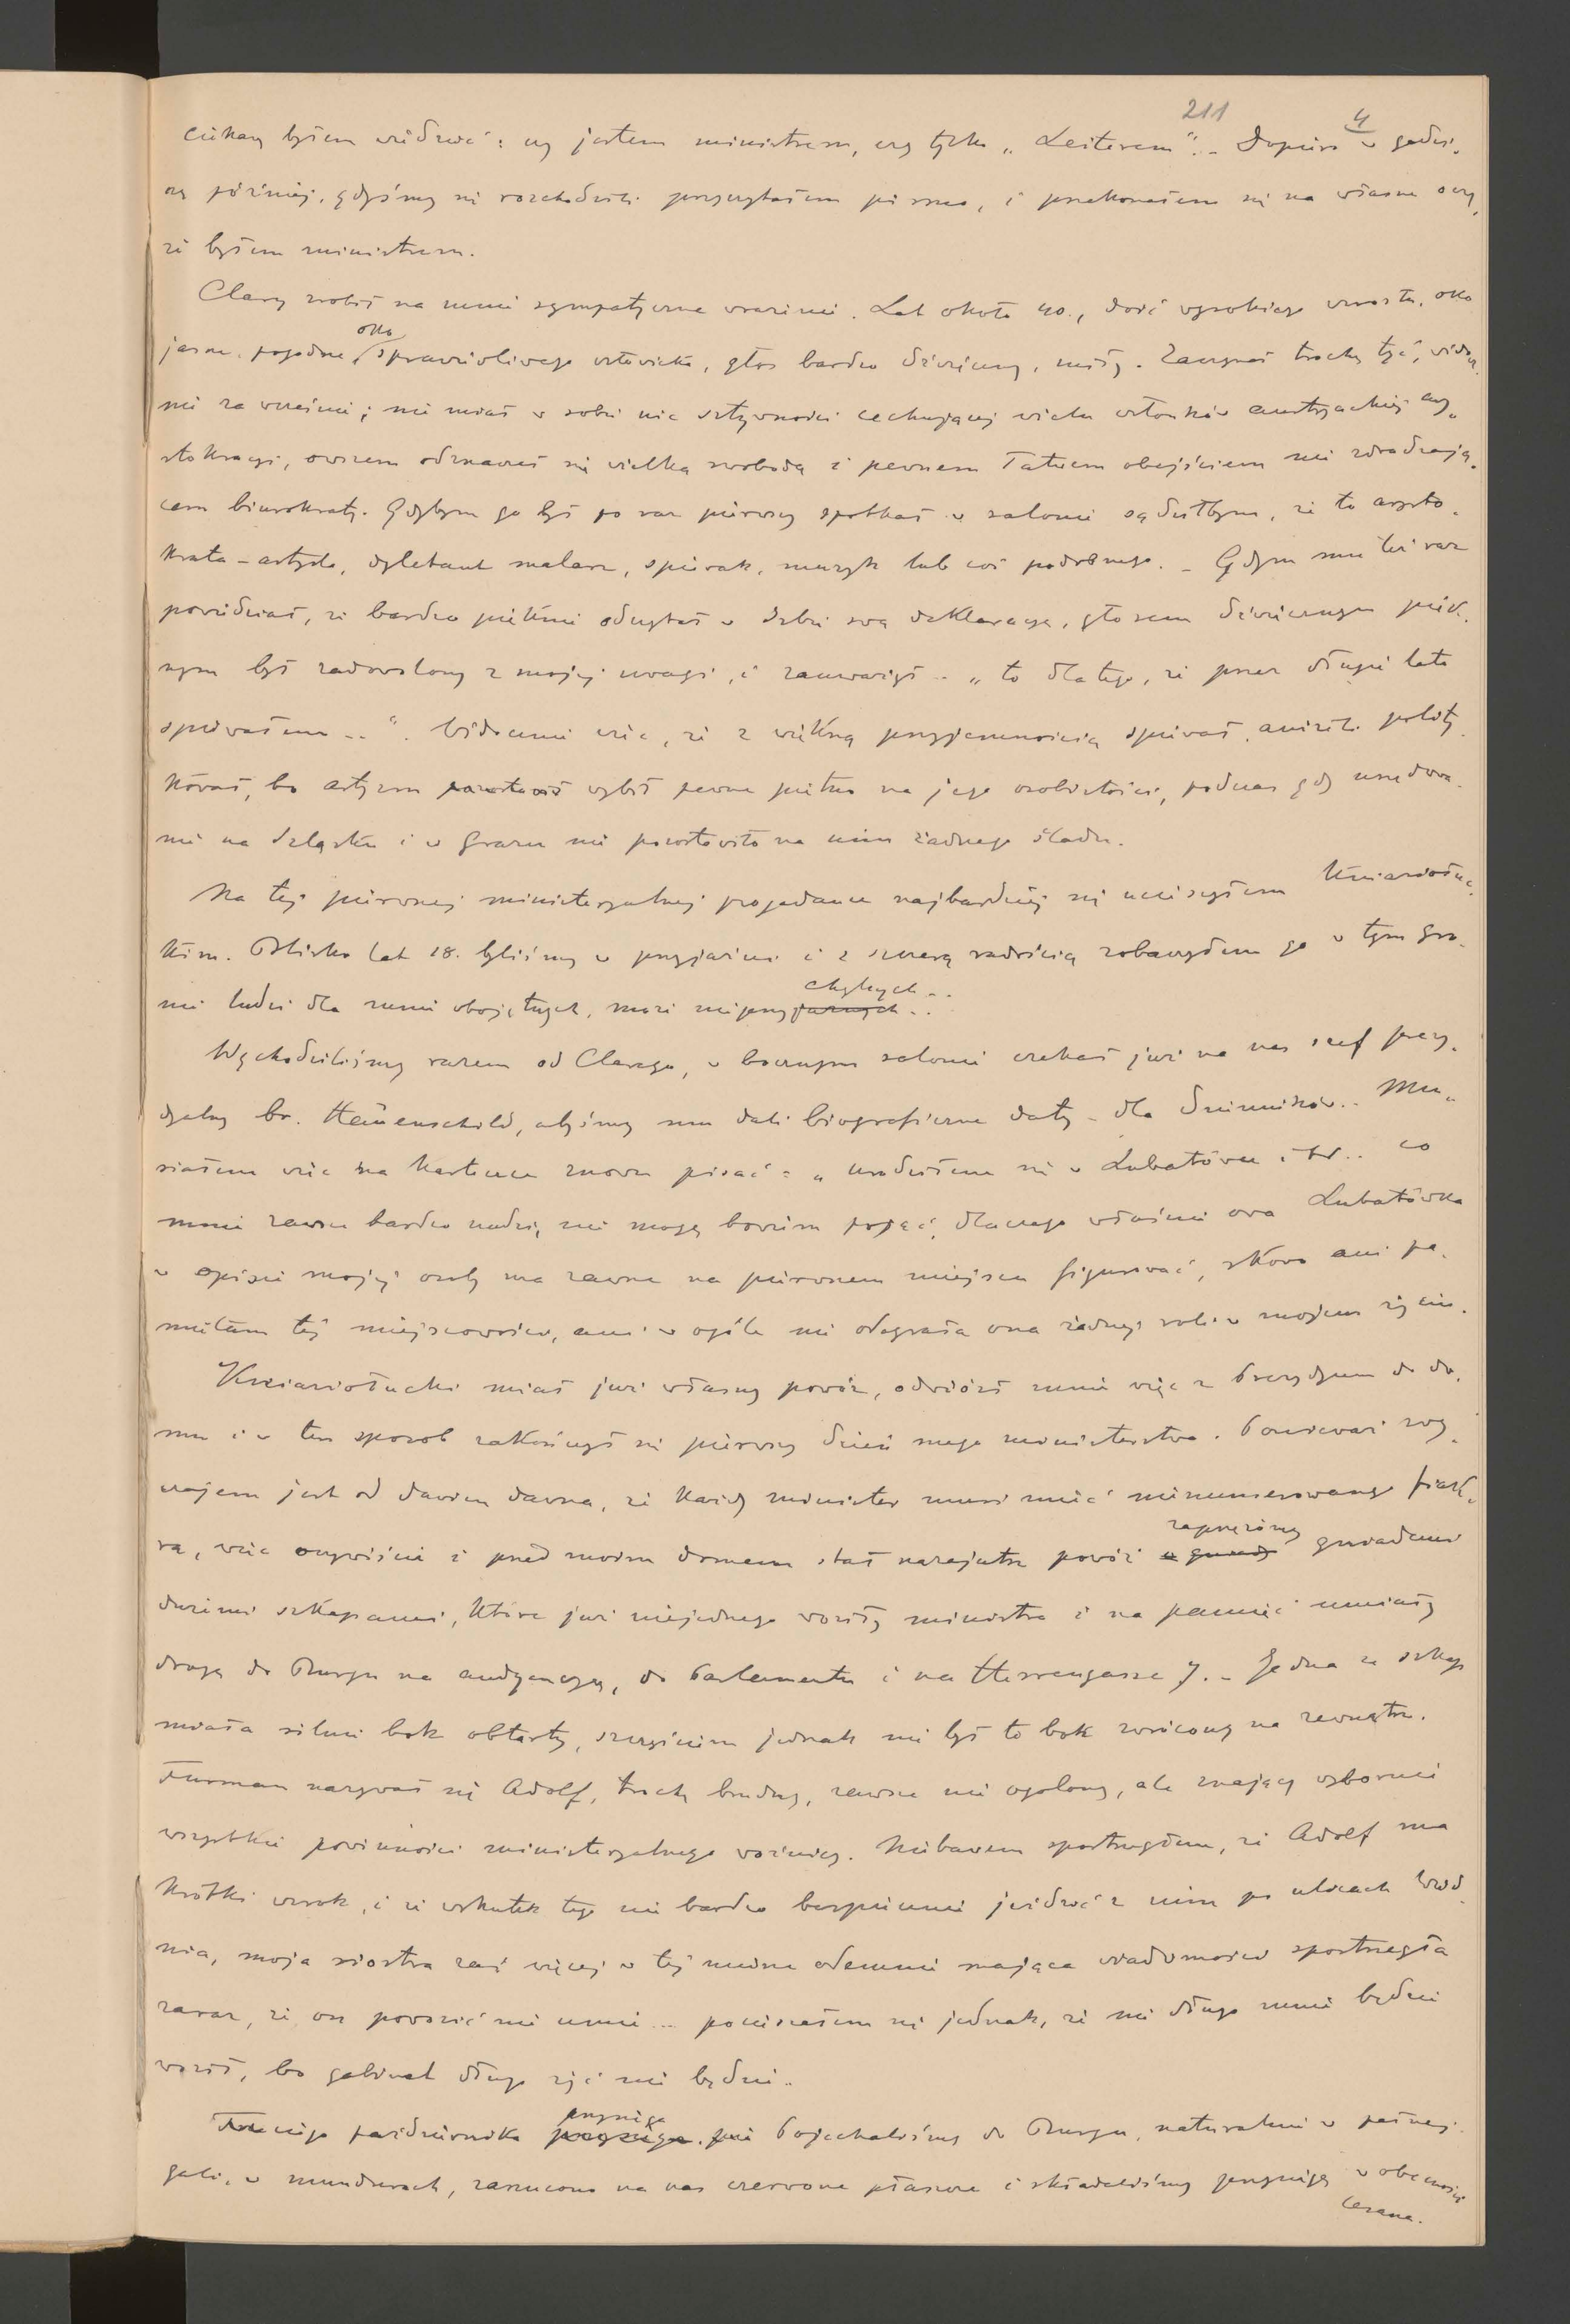 211
4
ciekaw byłem wiedzieć: czy jestem ministrem, czy tylko „Leiterem”.. Dopiero w godzi-
nę później, gdyśmy się rozchodzili przeczytałem pismo, i przekonałem się na własne oczy,
że byłem ministrem.
Clary zrobił na mnie sympatyczne wrażenie. Lat około 40., dość wysokiego wzrostu, oko
jasne, pogodne, oko sprawiedliwego człowieka, głos bardzo dźwięczny, miły. Zaczynał trochę tyć, widocz-
nie za wcześnie; nie miał w sobie nic sztywności cechującej wielu członków austryackiej ary-
stokracyi, owszem odznaczał się wielką swobodą i pewnem łatwem obejściem nie zdradzają-
cem biurokraty. Gdybym go był po raz pierwszy spotkał w salonie sądziłbym, że to arysto-
krata-artysta, dyletant malarz, śpiewak, muzyk lub coś podobnego. – Gdym mu też raz
powiedział, że bardzo pięknie odczytał w Izbie swą deklaracyę, głosem dźwięcznym pięk-
nym był zadowolony z mojej uwagi, i zauważył – „to dlatego, że przez długie lata
śpiewałem ..”. Widocznie więc, że z większą przyjemnością śpiewał, aniżeli polity-
kował, bo artyzm pozostawił wybił pewne piętno na jego osobistości, podczas gdy urzędowa-
nie na Szląsku i w Grazu nie pozostawiło na nim żadnego śladu.
Na tej pierwszej ministeryalnej pogadance najbardziej się ucieszyłem Kniaziołuc-
kim. Blisko lat 18. byliśmy w przyjaźni i z szczerą radością zobaczyłem go w tym gro-
nie ludzi dla mnie obojętnych, może nieprzyjaznych chylnych..
Wychodziliśmy razem od Clarego, w bocznym salonie czekał już na nas szef prezy-
dyalny br. Hauenschild, abyśmy mu dali biograficzne daty – dla dzienników.. Mu-
siałem więc na kartce znowu pisać: „urodziłem się w Lubatówce itd.. co
mnie zawsze bardzo nudzi, nie mogę bowiem pojąć, dlaczego właśnie owa Lubatówka
w opisie mojej osoby ma zawsze na pierwszem miejscu figurować, skoro ani pa-
miętam tej miejscowości, ani w ogóle nie odegrała ona żadnej roli w mojem życiu.
Kniaziołucki miał już własny powóz, odwiózł mnie więc z Prezydyum do do-
mu i w ten sposób zakończył się pierwszy dzień mego ministerstwa. Ponieważ zwy-
czajem jest od dawien dawna, że każdy minister musi mieć nienumerowanego fiak-
ra, więc oczywiście i przed moim domem stał nazajutrz powóz z gniady zaprzężony gniademi
dużemi szkapami, które już niejednego woziły ministra i na pamięć umiały
drogę do Burgu na audyencyę, do Parlamentu i na Herrengasse 7. – Jedna ze szkap
miała silnie bok obtarty, szczęściem jednak nie był to bok zwrócony na zewnątrz.
Furman nazywał się Adolf, trochę brudny, zawsze nie ogolony, ale znający wybornie
wszystkie powinności ministeryalnego woźnicy. Niebawem spostrzegłem, że Adolf ma
krótki wzrok, i że wskutek tego nie bardzo bezpiecznie jeździć z nim po ulicach Wied-
nia, moja siostra zaś więcej w tej mierze odemnie mająca wiadomości spostrzegła
zaraz, że on powozić nie umie... pocieszałem się jednak, że nie długo mnie będzie
woził, bo gabinet długo żyć nie będzie..
Trzeciego października przysięga przysięga. Pojechaliśmy do Burgu, naturalnie w pełnej
gali, w mundurach, zarzucono na nas czerwone płaszcze i składaliśmy przysięgę w obecności
Cesarza.